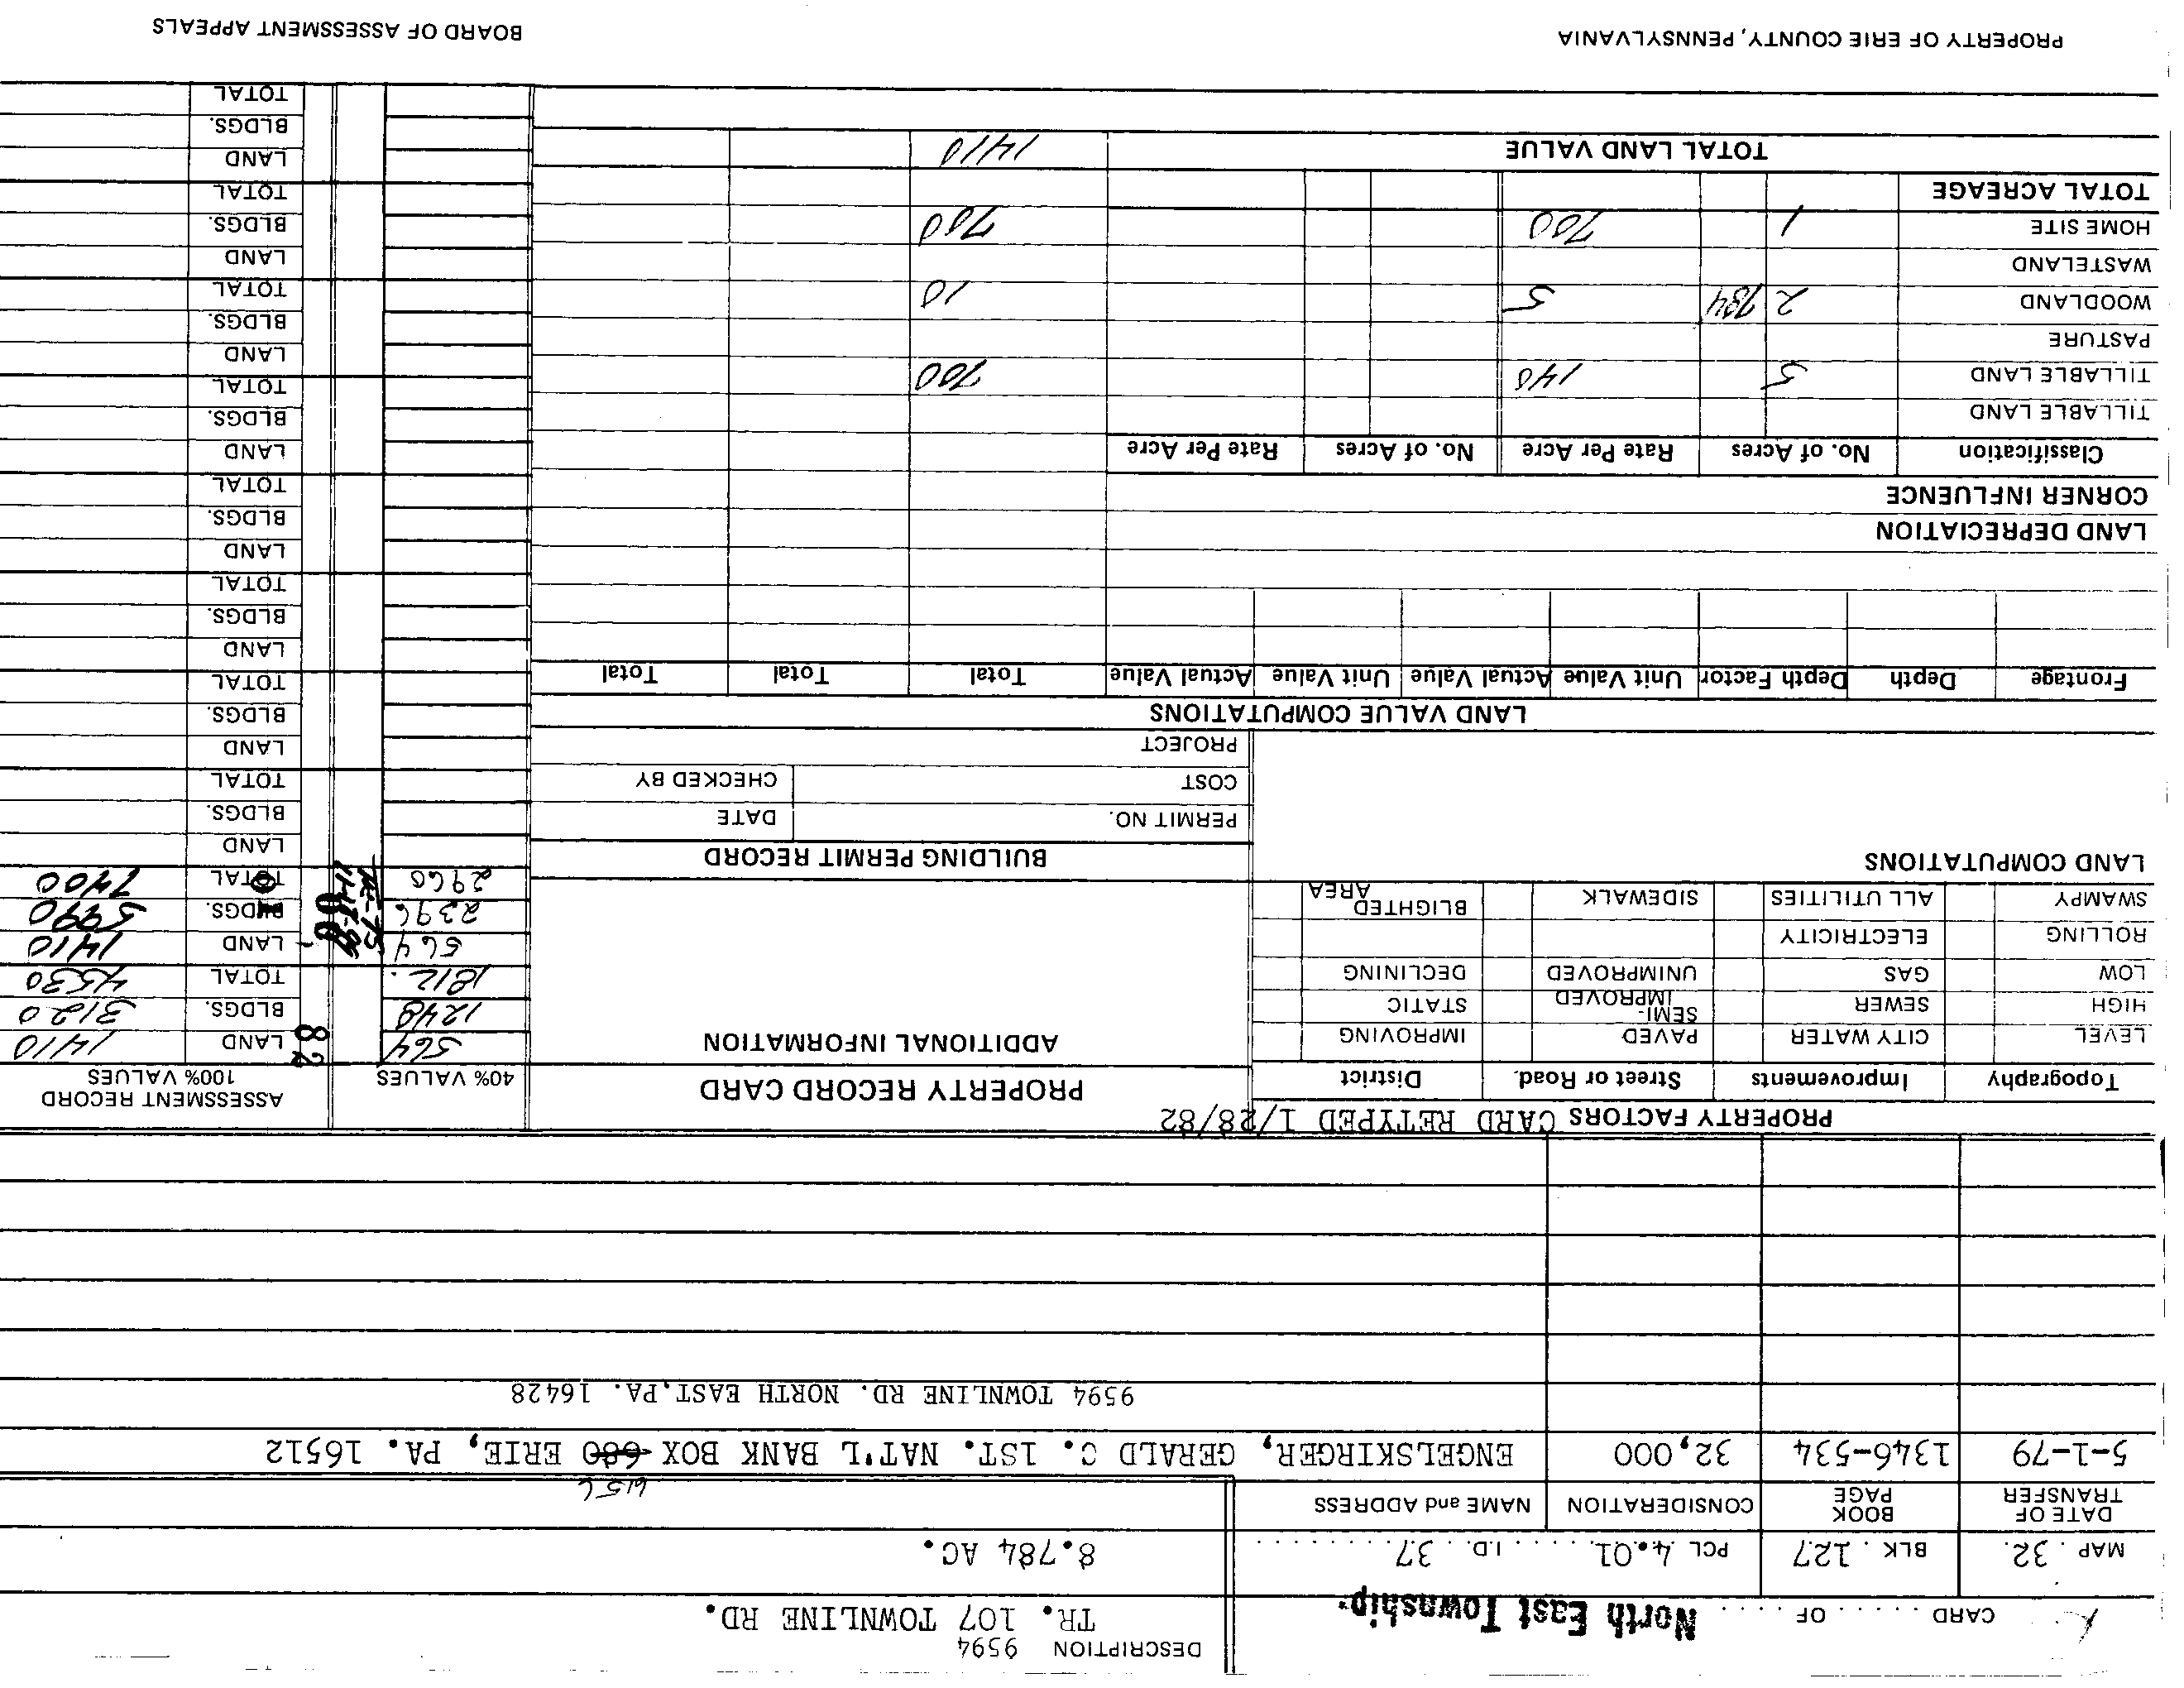 CARD ..... OF ..... North East Township
DESCRIPTION 9594
TR. 107 TOWNLINE RD.
MAP 32. BLK. 127 PCL 4.01. I.D. 37
8.784 AC.
DATE OF TRANSFER BOOK PAGE CONSIDERATION NAME and ADDRESS
5-1-79 1346-534 32,000 ENGELSKIRGER, GERALD C. 1ST. NAT'L BANK BOX 680 ERIE, PA. 16512
9594 TOWNLINE RD. NORTH EAST, PA. 16428
PROPERTY FACTORS CARD RETYPED 1/28/82
Topography Improvements Street or Road. District
LEVEL CITY WATER PAVED IMPROVING
HIGH SEWER SEMI-IMPROVED STATIC
LOW GAS UNIMPROVED DECLINING
ROLLING ELECTRICITY
SWAMPY ALL UTILITIES SIDEWALK BLIGHTED AREA
LAND COMPUTATIONS
PROPERTY RECORD CARD
ADDITIONAL INFORMATION
BUILDING PERMIT RECORD
PERMIT NO. DATE
COST CHECKED BY
PROJECT
LAND VALUE COMPUTATIONS
Frontage Depth Depth Factor Unit Value Actual Value Unit Value Actual Value Total Total Total
LAND DEPRECIATION
CORNER INFLUENCE
Classification No. of Acres Rate Per Acre No. of Acres Rate Per Acre
TILLABLE LAND
TILLABLE LAND 5 140 700
PASTURE
WOODLAND 2 784 5 10
WASTELAND
HOME SITE 1 700 700
TOTAL ACREAGE
TOTAL LAND VALUE 1410
40% VALUES ASSESSMENT RECORD 100% VALUES
564 82 LAND 1410
1248 BLDGS. 3120
1812. TOTAL 4530
564 LAND 1410
2396 BLDGS. 5990
2960 TOTAL 7400
LAND
BLDGS.
TOTAL
LAND
BLDGS.
TOTAL
LAND
BLDGS.
TOTAL
LAND
BLDGS.
TOTAL
LAND
BLDGS.
TOTAL
LAND
BLDGS.
TOTAL
LAND
BLDGS.
TOTAL
LAND
BLDGS.
TOTAL
PROPERTY OF ERIE COUNTY, PENNSYLVANIA
BOARD OF ASSESSMENT APPEALS